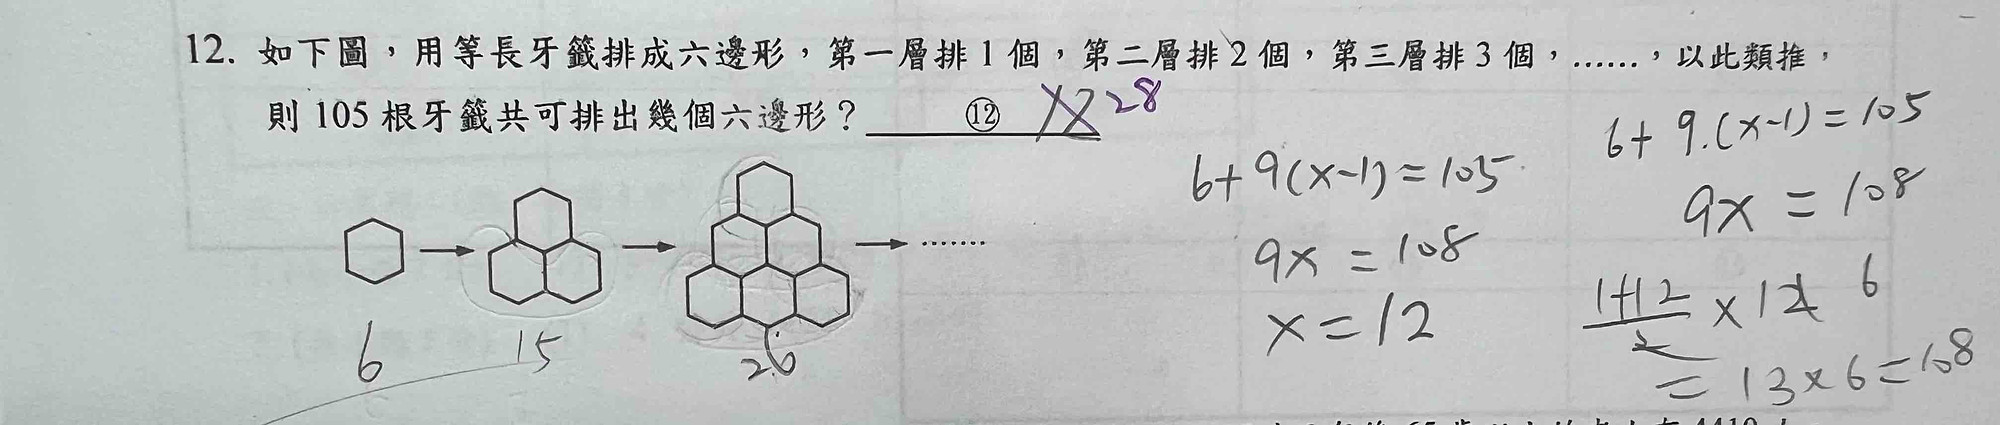 12. 如下圖，用等長牙籤排成六邊形，第一層排 1 個，第二層排 2 個，第三層排 3 個，……，以此類推，
則 105 根牙籤共可排出幾個六邊形？ ⑫ 28
6+9(x-1)=105
9x=108
x=12
6+9.(x-1)=105
9x=108
6
=13×6=108
6
15